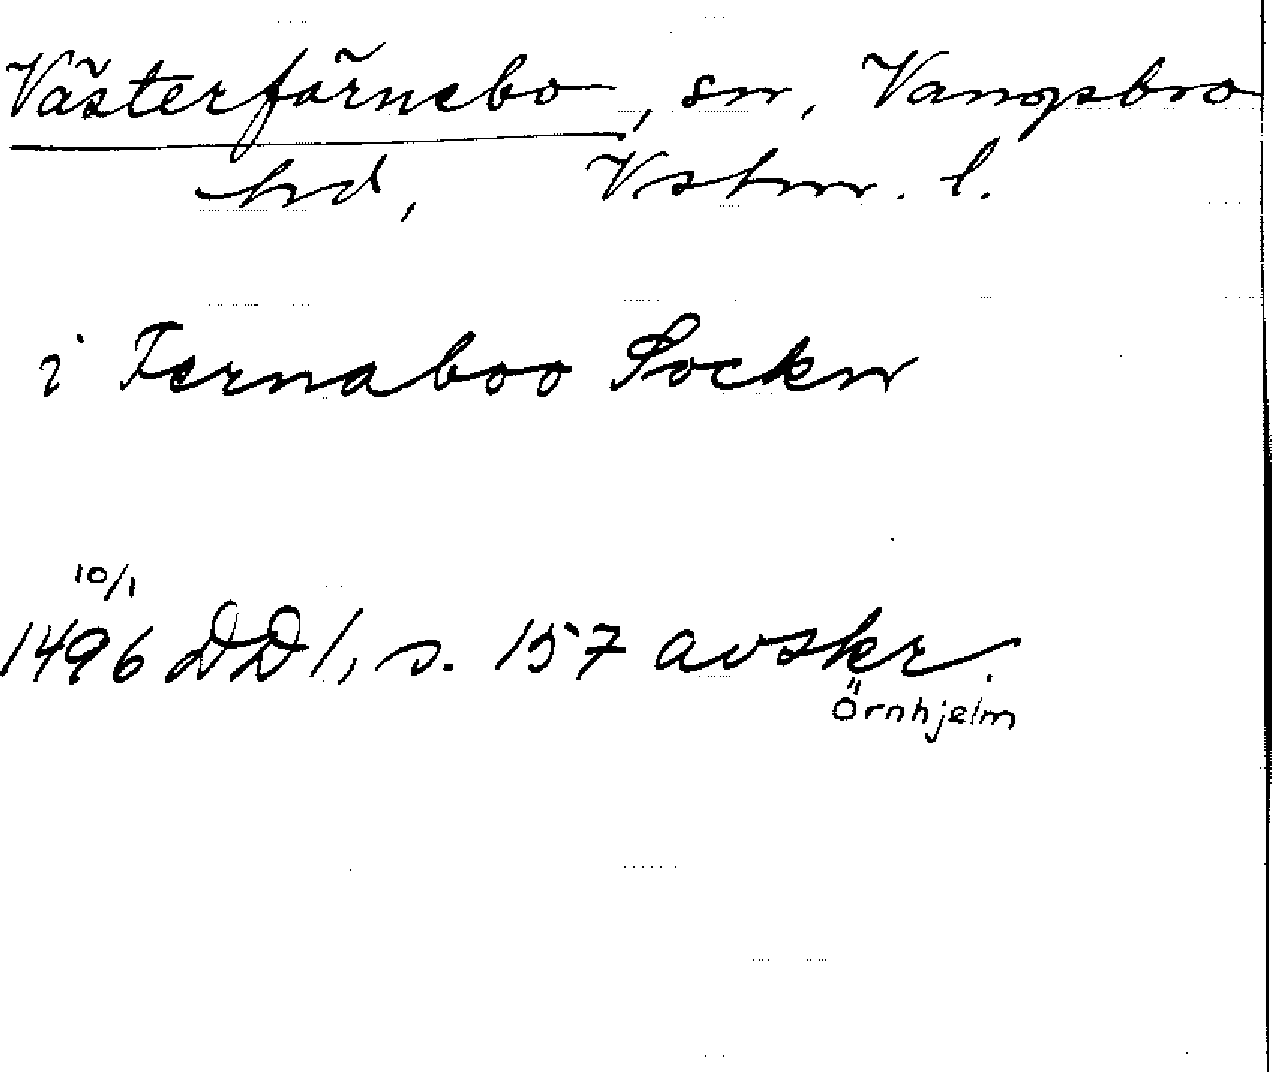 Västerfärnebo, sn, Vangsbro
hd, Vstm. l.
i Fernaboo Sockn
10/1
1496 DD1, s. 157 avskr.
Örnhjelm